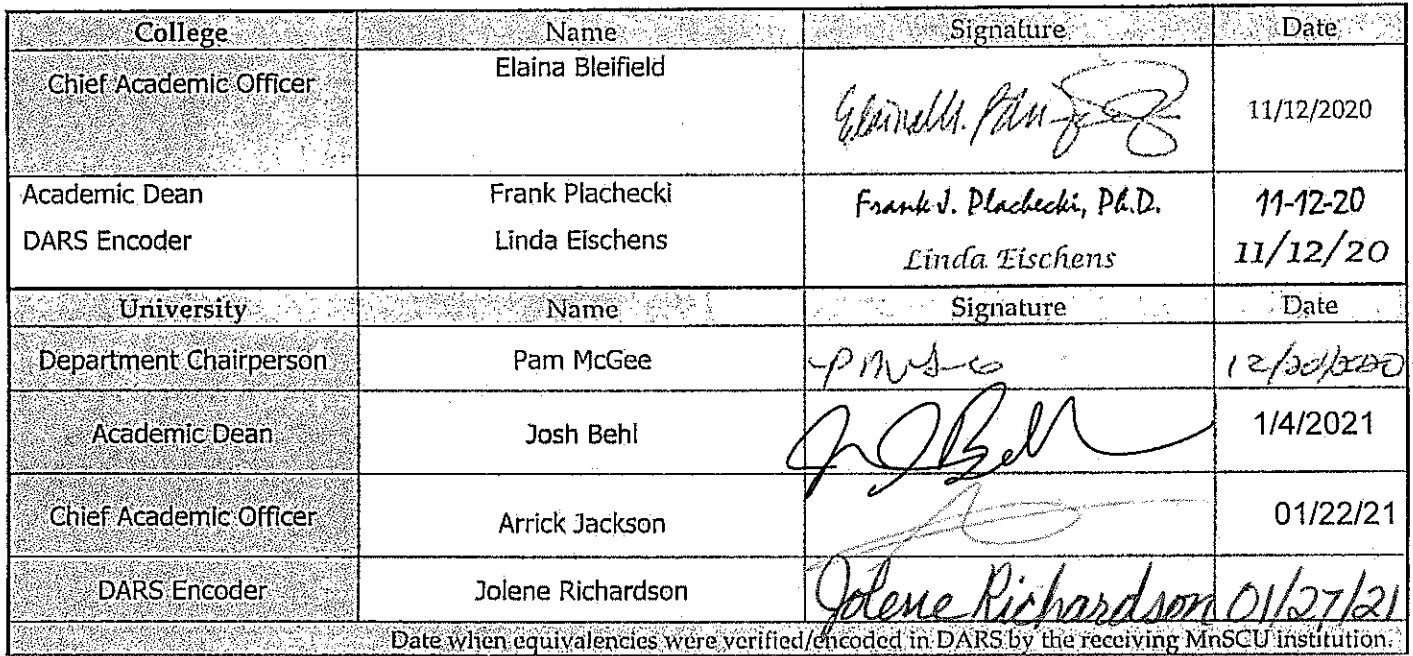 College Name Signature Date
Chief Academic Officer Elaina Bleifield 11/12/2020
Academic Dean Frank Plachecki Frank J. Plachecki, Ph.D. 11-12-20
DARS Encoder Linda Eischens Linda Eischens 11/12/20
University Name Signature Date
Department Chairperson Pam McGee
Academic Dean Josh Behl 1/4/2021
Chief Academic Officer Arrick Jackson 01/22/21
DARS Encoder Jolene Richardson Jolene Richardson 01/27/21
Date when equivalencies were verified/encoded in DARS by the receiving MnSCU institution.